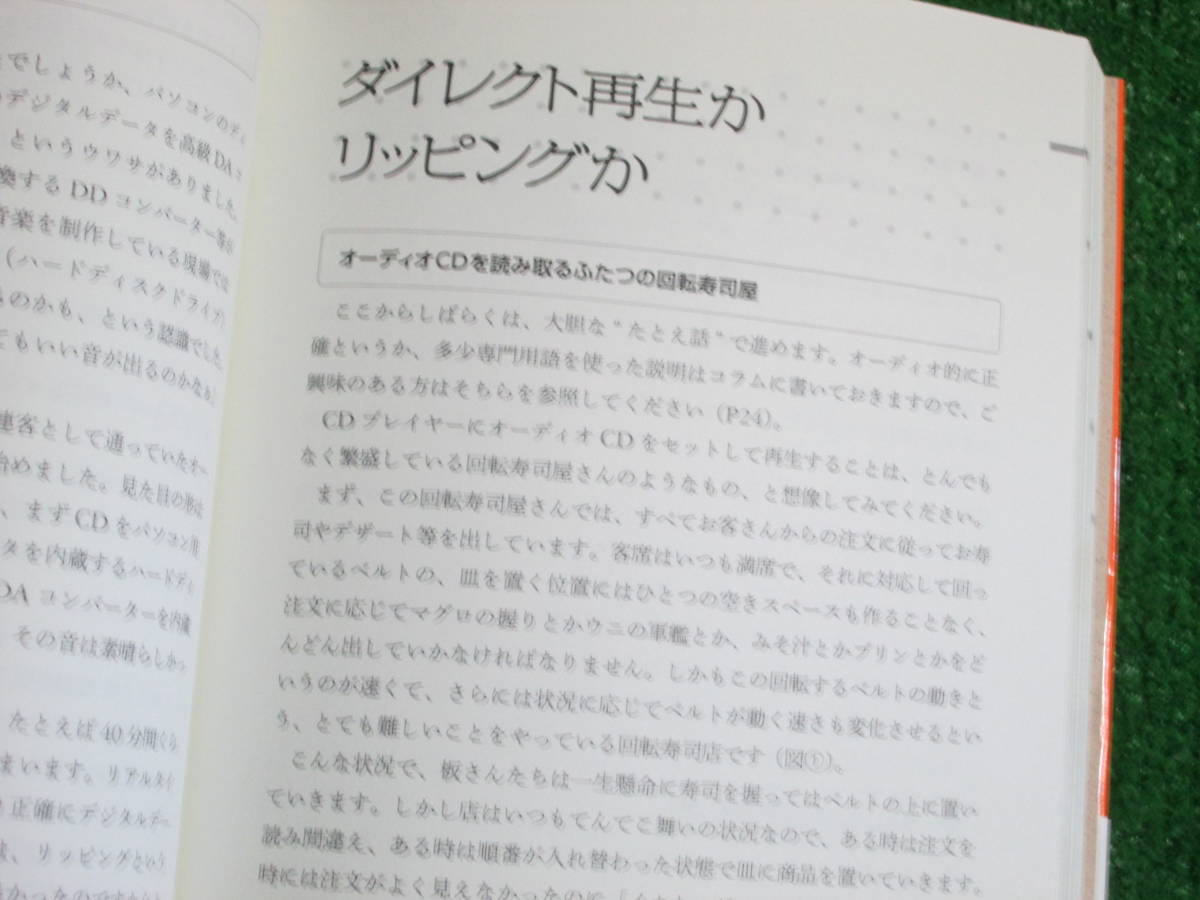 でしょうか、パソコンのディ
デジタルデータを高級DAコ
というウワサがありました。
換するDDコンバーター等が
音楽を制作している現場では
（ハードディスクドライブ）
のかも、という認識でした。
てもいい音が出るのかなぁ」
連客として通っていたオー
始めました。見た目の形は
、まずCDをパソコン用
タを内蔵するハードディ
DAコンバーターを内蔵
その音は素晴らしかっ
たとえば40分間くら
まいます。リアルタイ
正確にデジタルデー
リッピングという
ダイレクト再生か
リッピングか
オーディオCDを読み取るふたつの回転寿司屋
ここからしばらくは、大胆な“たとえ話”で進めます。オーディオ的に正
確というか、多少専門用語を使った説明はコラムに書いておきますので、ご
興味のある方はそちらを参照してください（P24）。
CDプレイヤーにオーディオCDをセットして再生することは、とんでも
なく繁盛している回転寿司屋さんのようなもの、と想像してみてください。
まず、この回転寿司屋さんでは、すべてお客さんからの注文に従ってお寿
司やデザート等を出しています。客席はいつも満席で、それに対応して回っ
ているベルトの、皿を置く位置にはひとつの空きスペースも作ることなく、
注文に応じてマグロの握りとかウニの軍艦とか、みそ汁とかプリンとかをど
んどん出していかなければなりません。しかもこの回転するベルトの動きと
いうのが速くて、さらには状況に応じてベルトが動く速さも変化させるとい
う、とても難しいことをやっている回転寿司店です（図①）。
こんな状況で、板さんたちは一生懸命に寿司を握ってはベルトの上に置い
ていきます。しかし店はいつもてんてこ舞いの状況なので、ある時は注文を
読み間違え、ある時は順番が入れ替わった状態で皿に商品を置いていきます。
時には注文がよく見えなかったのに